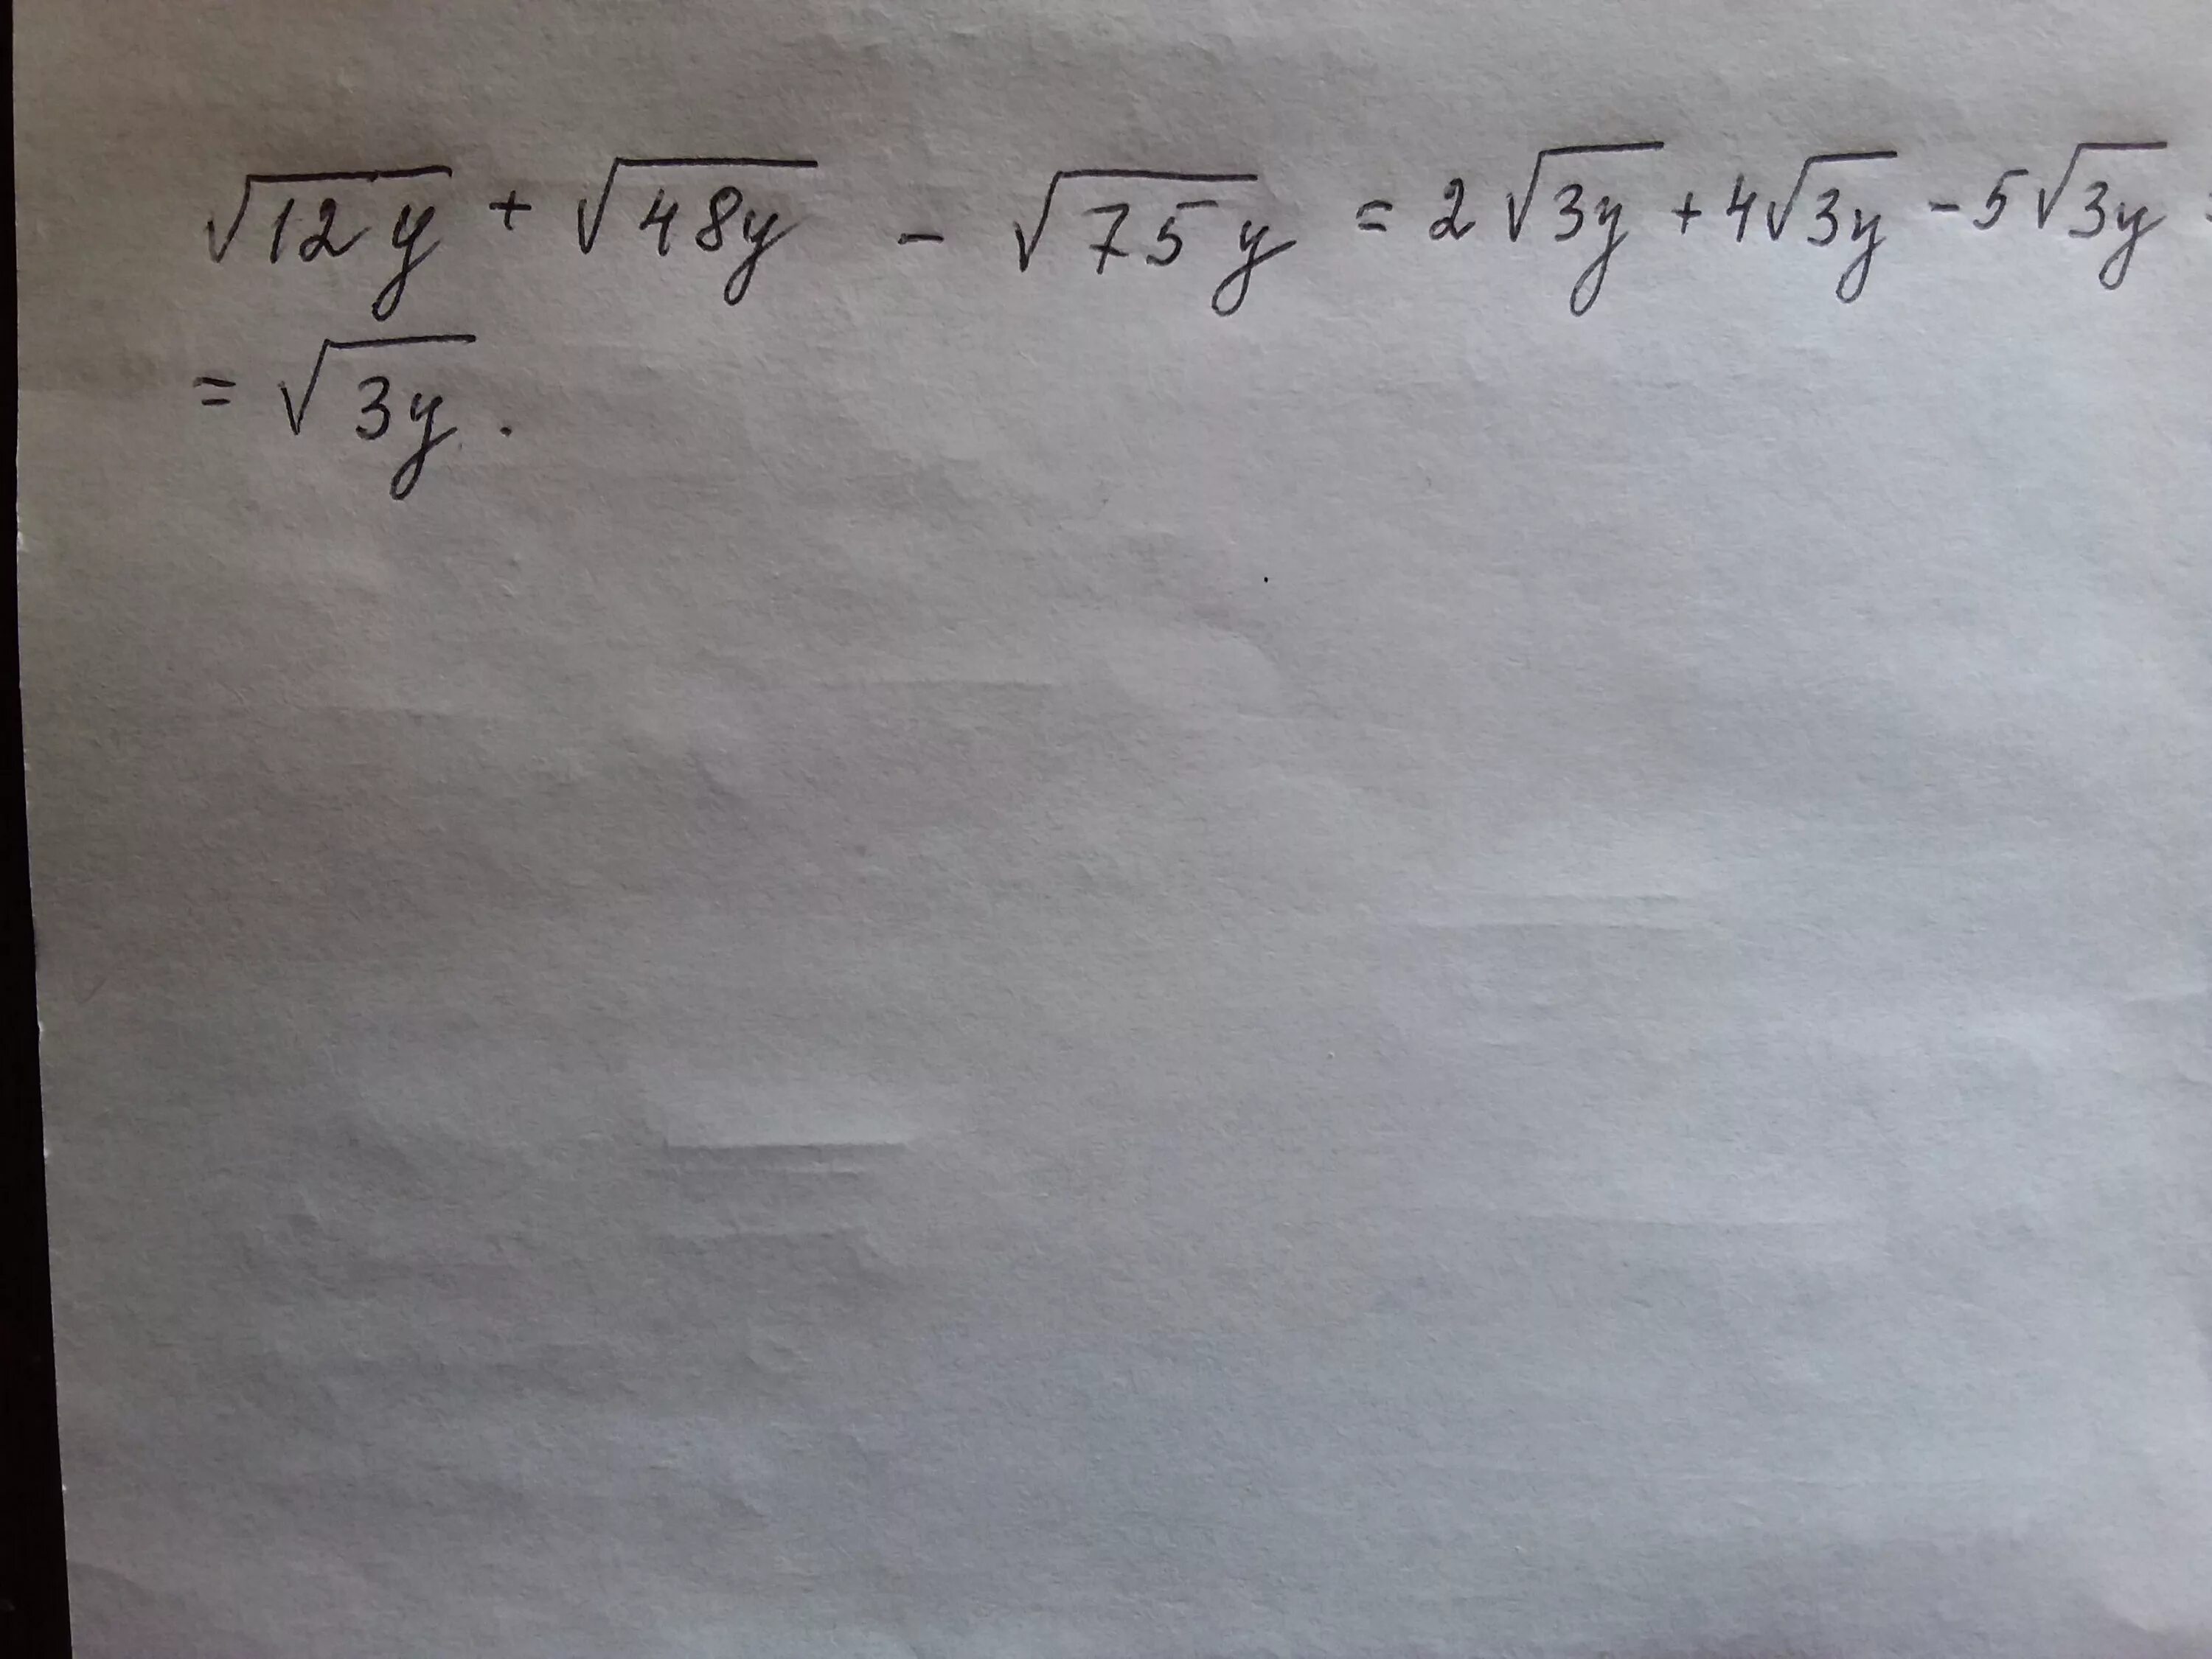 √12y + √48y - √75y = 2√3y + 4√3y - 5√3y
= √3y.